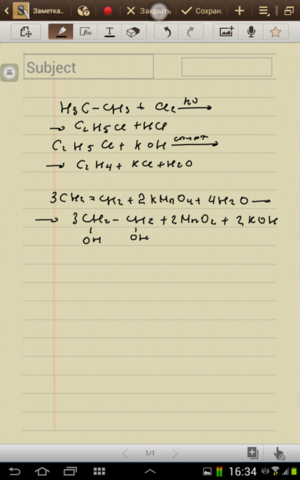 Заметка.
Закрыть
Сохран.
Subject
H3C-CH3 + Cl2 hν→
→ C2H5Cl + HCl
C2H5Cl + KOH спирт→
→ C2H4 + KCl + H2O
3CH2=CH2 + 2KMnO4 + 4H2O →
→ 3CH2-CH2 + 2MnO2 + 2KOH
OH OH
1/1
16:34